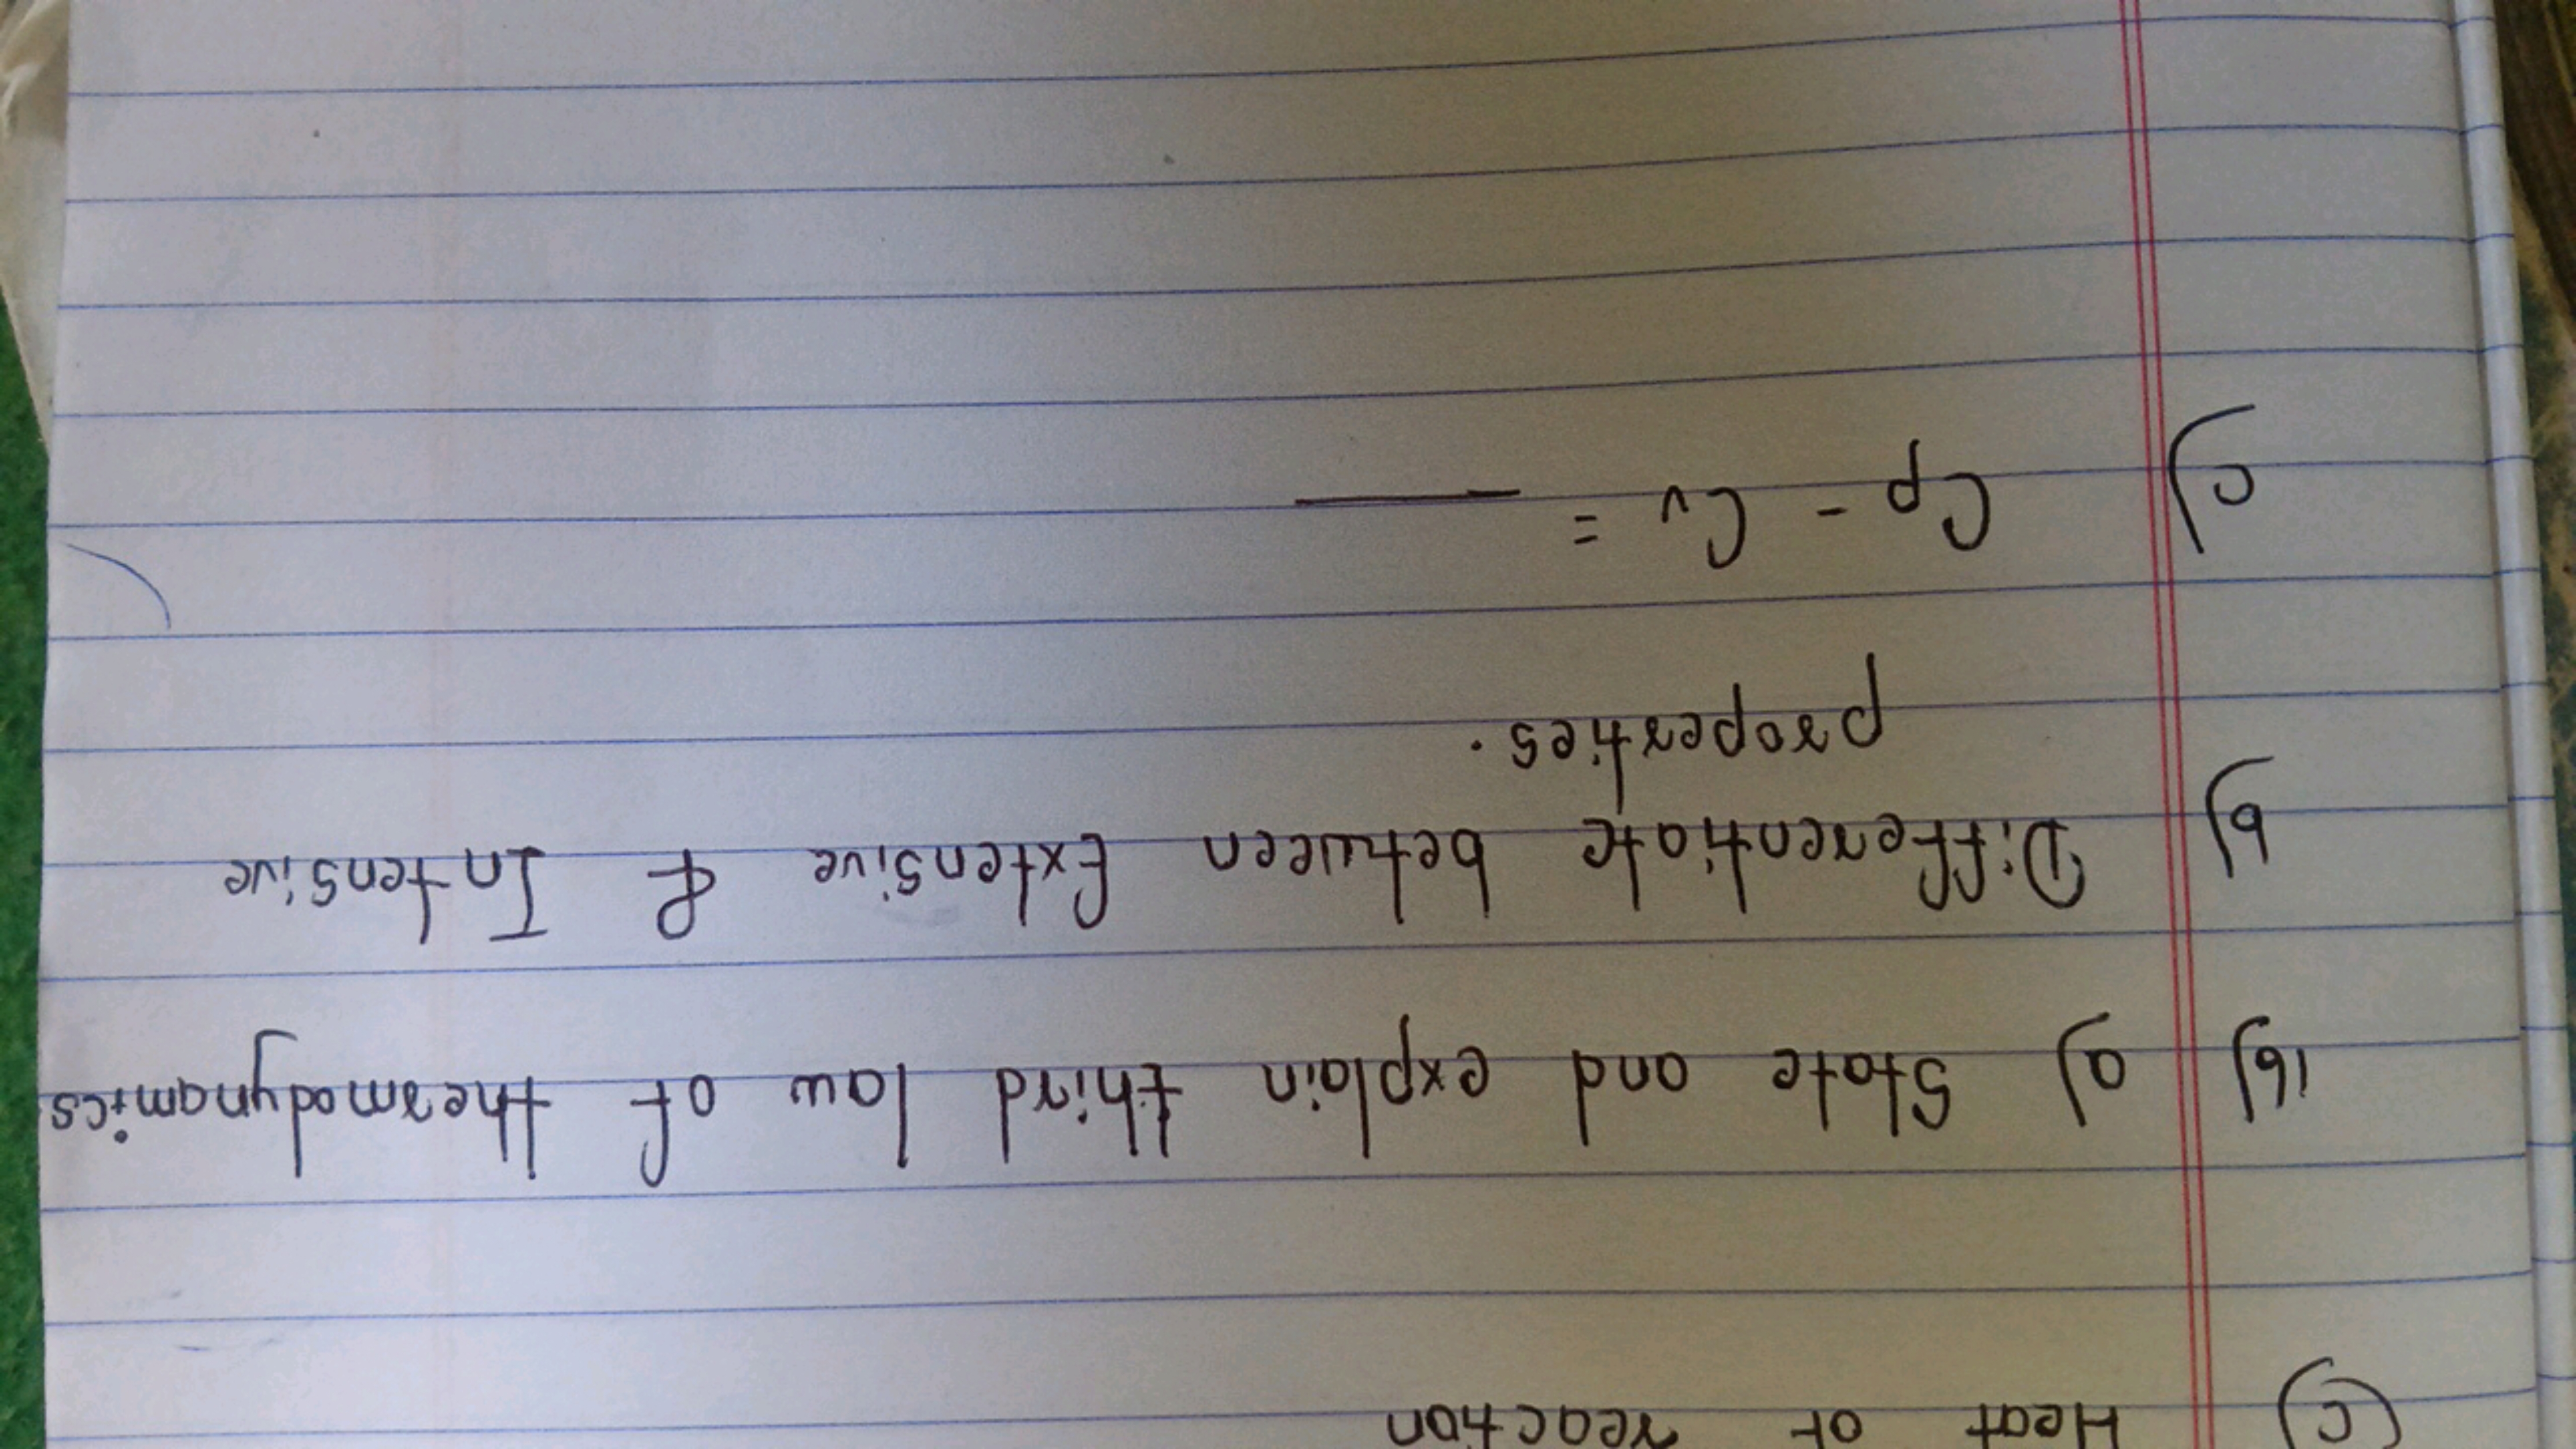 c) Heat of reaction
16) a) State and explain third law of thermodynamics
b) Differentiate between Extensive & Intensive
properties.
c) Cp - Cv = ____